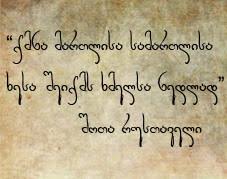 “ქმნა მართლისა სამართლისა
ხესა შეიქმს ხმელსა ნედლად”
შოთა რუსთაველი